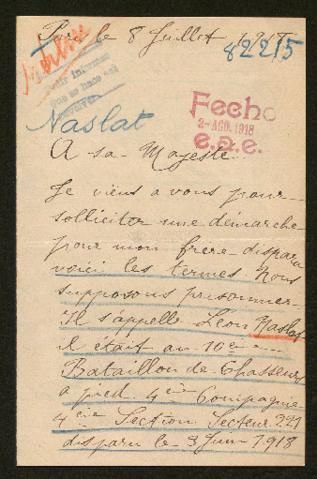 le 8 Juillet 1918
82215
pedir informes
que se hace
Fecho
2-AGO.1918
e.a.e.
Naslat
A sa Majesté
Je viens a vous pour
solliciter une démarche
pour mon frère disparu
voici les termes Nous
supposons prisonnier
Il s'appelle Léon Naslat
il était au 10eme
Bataillon de Chasseurs
a pied. 4eme Compagnie
4eme Section Secteur 221
disparu le 3 Juin 1918